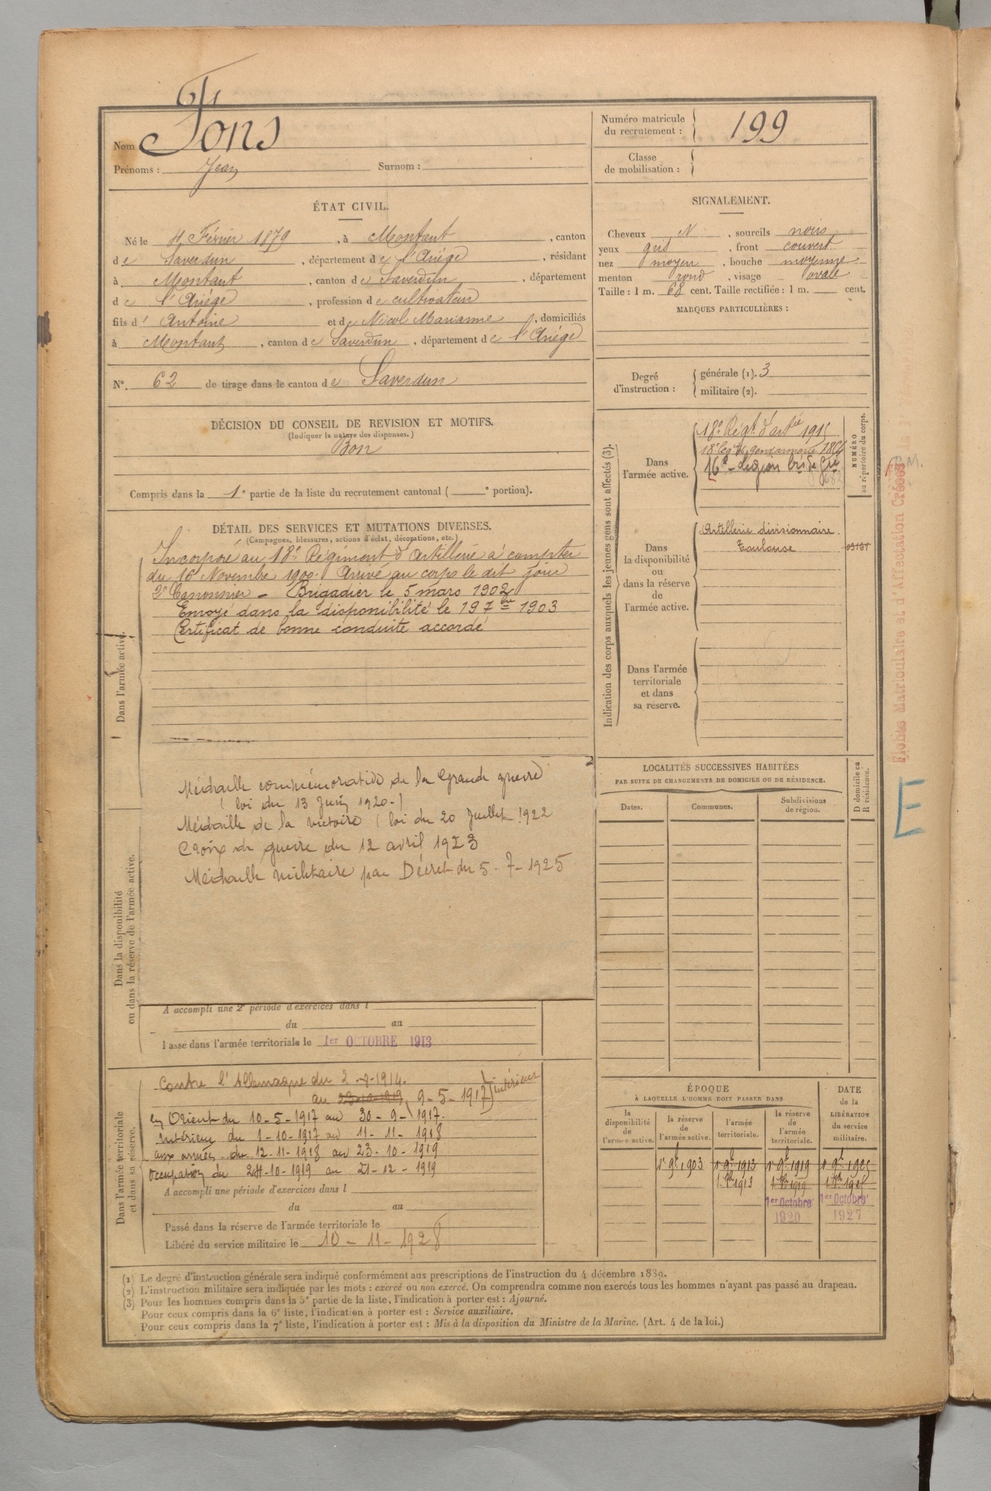 Nom Fons
Prénoms : Jean Surnom :
Numéro matricule du recrutement : 199
Classe de mobilisation :
ÉTAT CIVIL.
Né le Février 1879, à Montaut, canton
de Saverdun, département de l'Ariège, résidant
à Montaut, canton de Saverdun, département
de l'Ariège, profession de cultivateur
fils d' Antoine et de Nicol Marianne, domiciliés
à Montaut, canton de Saverdun, département de l'Ariège
N°. 62 de tirage dans le canton de Saverdun
SIGNALEMENT.
Cheveux N, sourcils noirs
yeux gris, front couvert
nez moyen, bouche moyenne
menton rond, visage ovale
Taille : 1 m. 68 cent. Taille rectifiée : 1 m. cent.
MARQUES PARTICULIÈRES :
Degré d'instruction : générale (1). 3
militaire (2).
DÉCISION DU CONSEIL DE REVISION ET MOTIFS.
(Indiquer la nature des dispenses.)
Bon
Compris dans la 1e partie de la liste du recrutement cantonal ( e portion).
DÉTAIL DES SERVICES ET MUTATIONS DIVERSES.
(Campagnes, blessures, actions d'éclat, décorations, etc.)
Dans l'armée active.
Incorporé au 18e Régiment d'artillerie à compter
du 16 Novembre 1900. Arrivé au corps le dit jour
2e Canonnier - Brigadier le 5 mars 1902
Envoyé dans la disponibilité le 19 7bre 1903
Certificat de bonne conduite accordé
Dans la disponibilité
ou dans la réserve de l'armée active.
Médaille commémorative de la Grande guerre
(loi du 13 Juin 1920-)
Médaille de la victoire (loi du 20 Juillet 1922
Croix de guerre du 12 avril 1923
Médaille militaire par Décret du 5-7-1925
A accompli une 2e période d'exercices dans l
du au
Passé dans l'armée territoriale le 1er OCTOBRE 1913
Dans l'armée territoriale
et dans sa réserve.
Contre l'Allemagne du 2-8-1914.
au 9-5-1917 intérieur
en Orient du 10-5-1917 au 30-9-1917.
Intérieur du 1-10-1917 au 11-11-1918
aux armées du 12-11-1918 au 23-10-1919
occupation du 24-10-1919 au 21-12-1919
A accompli une période d'exercices dans l
du au
Passé dans la réserve de l'armée territoriale le
Libéré du service militaire le 10-11-1928
Indication des corps auxquels les jeunes gens sont affectés (3).
NUMÉRO
au répertoire du corps.
Dans l'armée active.
18e Régt d'artie
16e Légion
Dans la disponibilité ou dans la réserve de l'armée active.
Artillerie divisionnaire
Toulouse
Dans l'armée territoriale et dans sa réserve.
LOCALITÉS SUCCESSIVES HABITÉES
PAR SUITE DE CHANGEMENTS DE DOMICILE OU DE RÉSIDENCE.
Dates. Communes. Subdivisions de région. D domicile ou R résidence.
E
ÉPOQUE
À LAQUELLE L'HOMME DOIT PASSER DANS
DATE de la LIBÉRATION du service militaire.
la disponibilité de l'armée active. la réserve de l'armée active. l'armée territoriale. la réserve de l'armée territoriale.
1er Octobre 1920 1er Octobre 1927
(1) Le degré d'instruction générale sera indiqué conformément aux prescriptions de l'instruction du 4 décembre 1889.
(2) L'instruction militaire sera indiquée par les mots : exercé ou non exercé. On comprendra comme non exercés tous les hommes n'ayant pas passé au drapeau.
(3) Pour les hommes compris dans la 5e partie de la liste, l'indication à porter est : Ajourné.
Pour ceux compris dans la 6e liste, l'indication à porter est : Service auxiliaire.
Pour ceux compris dans la 7e liste, l'indication à porter est : Mis à la disposition du Ministre de la Marine. (Art. 4 de la loi.)